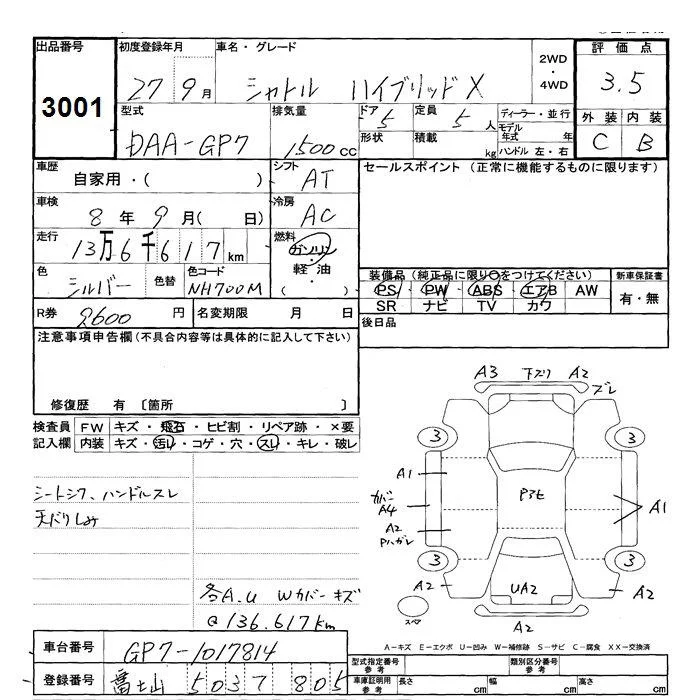 出品番号 初度登録年月 車名・グレード 2WD ・ 4WD 評価点
3001 27 9月 シャトル ハイブリッドX 3.5
型式 排気量 ドア 定員 ディーラー・並行 外装 内装
DAA-GP7 1500cc 5 5人 モデル年式 年 C B
形状 積載 kg ハンドル 左・右
車歴 シフト セールスポイント (正常に機能するものに限ります)
自家用・( ) AT
車検 冷房
8年 9月( 日) AC
走行 燃料
13万6千617km ガソリン・軽油 ( )
色 色替 色コード 装備品(純正品に限り○をつけてください) 新車保証書
シルバー NH700M PS PW ABS エアB AW 有・無
SR ナビ TV カワ
R券 2600円 名変期限 月 日 後日品
注意事項申告欄(不具合内容等は具体的に記入して下さい)
修復歴 有 〔箇所 〕
検査員 FW キズ・飛石・ヒビ割・リペア跡・×要
記入欄 内装 キズ・汚れ・コゲ・穴・スレ・キレ・破レ
シートシワ、ハンドルスレ
天バリしみ
各A.U Wカバーキズ
@136.617km
A3 下スリ A2
ズレ
3 3
A1
カバー
A4 Pアセ A1
A2
Pハガレ
3 3
A2 UA2 A2
スペア A2
A-キズ E-エクボ U-凹み W-補修跡 S-サビ C-腐食 XX-交換済
車台番号 GP7-1017814
登録番号 富士山 503 て 805
型式指定番号 参考 類別区分番号 参考
車庫証明用 参考 長さ cm 幅 cm 高さ cm